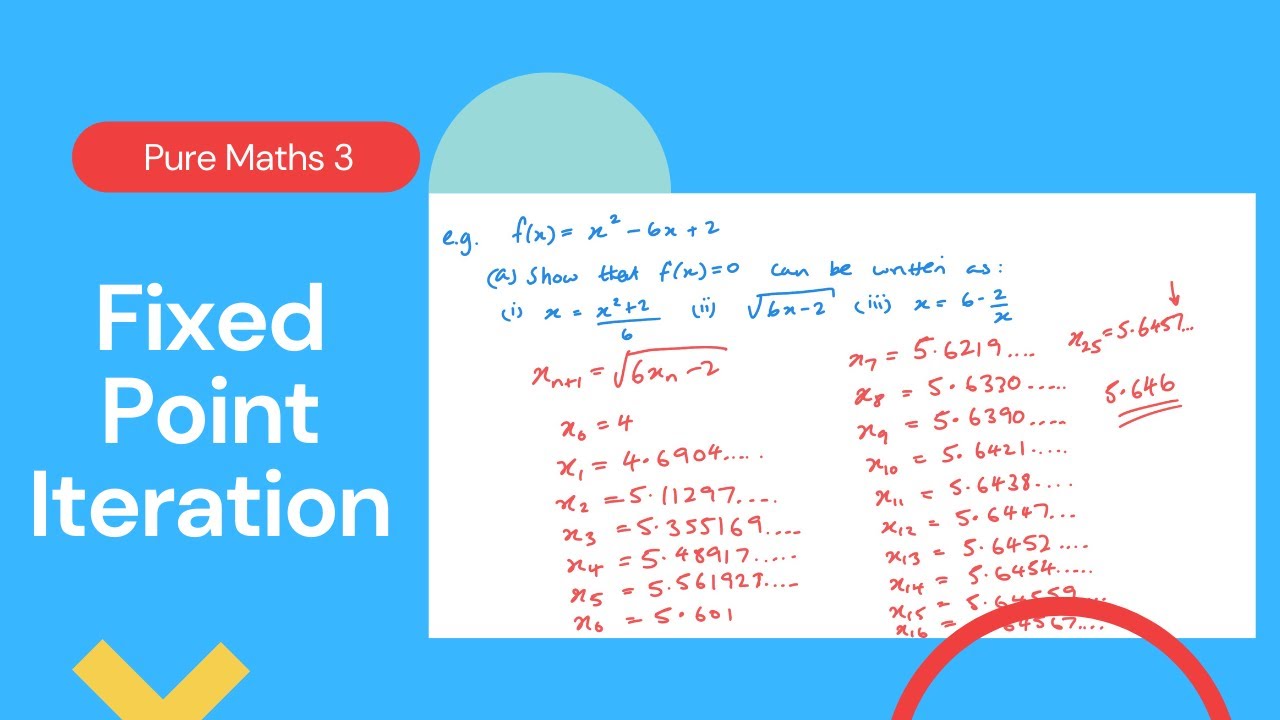 Pure Maths 3
Fixed
Point
Iteration
e.g. f(x) = x² - 6x + 2
(a) Show that f(x)=0 can be written as:
(i) x = (x²+2)/6 (ii) √(6x-2) (iii) x = 6 - 2/x
xₙ₊₁ = √(6xₙ - 2)
x₀ = 4
x₁ = 4.6904.....
x₂ = 5.11297....
x₃ = 5.355169....
x₄ = 5.48917.....
x₅ = 5.561927....
x₆ = 5.601
x₇ = 5.6219....
x₈ = 5.6330.....
x₉ = 5.6390....
x₁₀ = 5.6421.....
x₁₁ = 5.6438....
x₁₂ = 5.6447...
x₁₃ = 5.6452....
x₁₄ = 5.6454.....
x₁₅ = 5.64559...
x₁₆ = 64567....
x₂₅ = 5.6457...
5.646